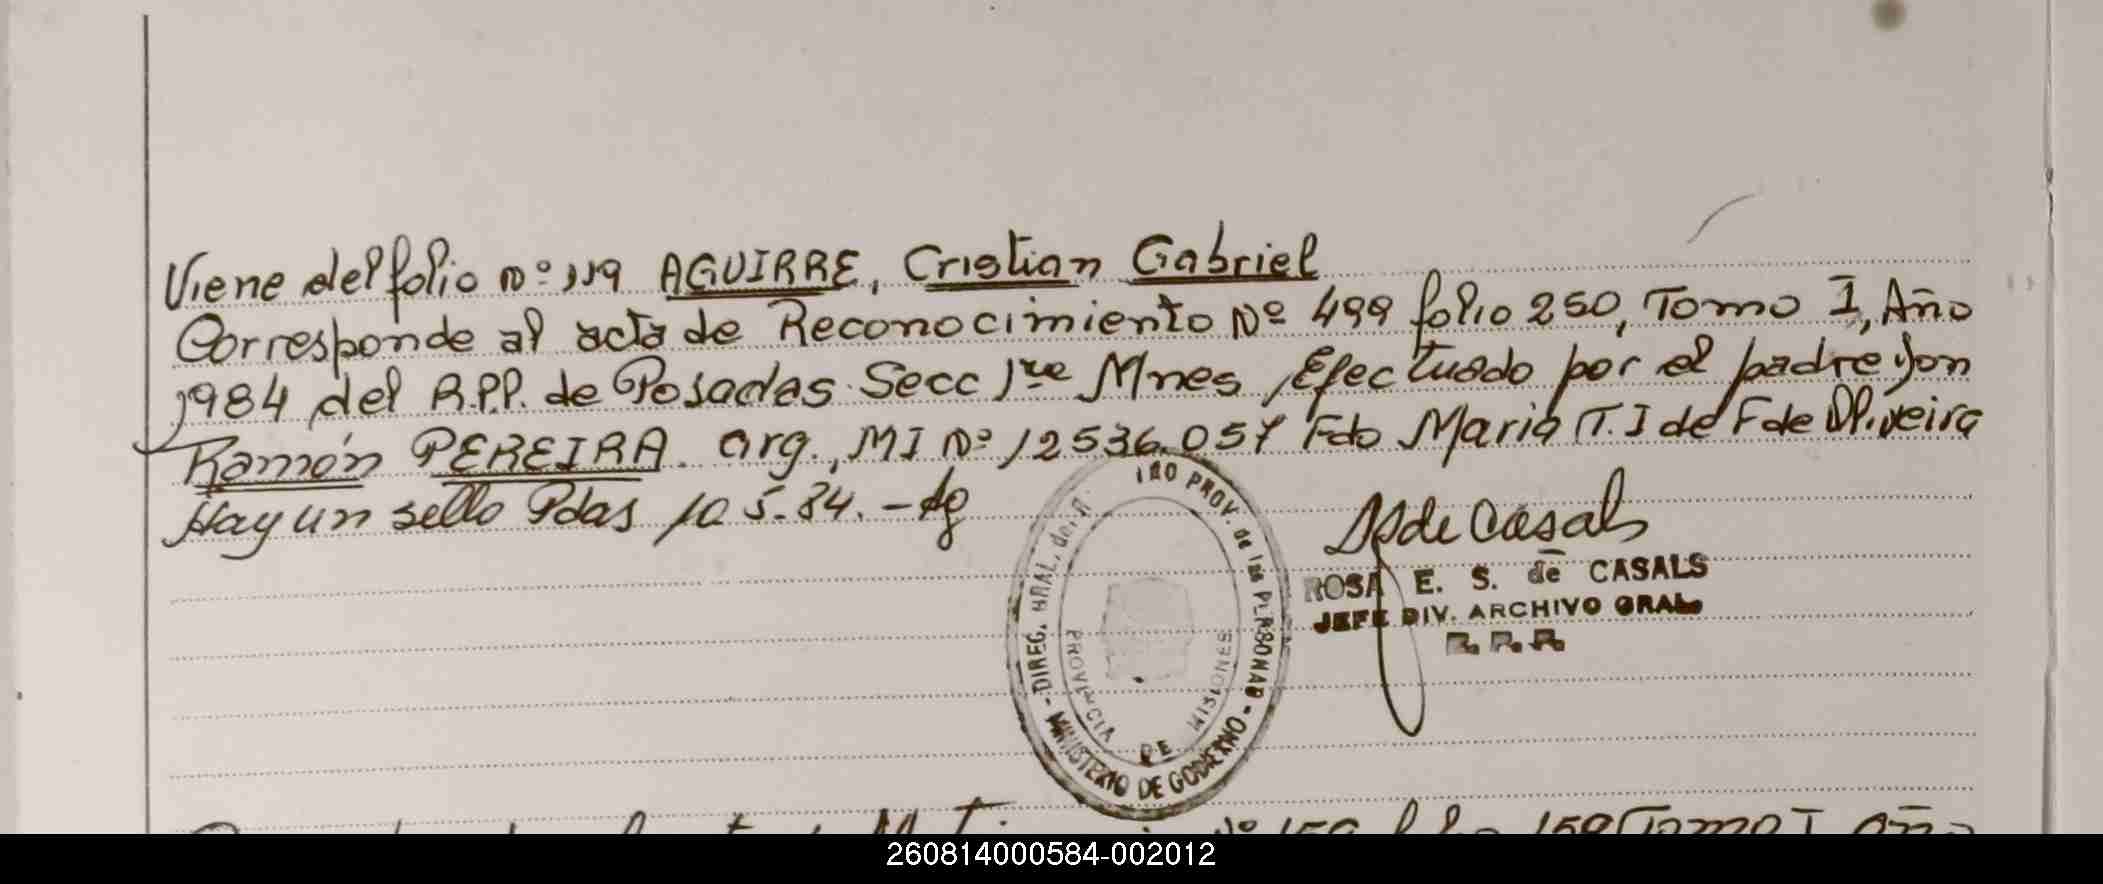 Viene del folio Nº 119 AGUIRRE, Cristian Gabriel
Corresponde al acta de Reconocimiento Nº 499 folio 250, Tomo I, Año
1984 del R.P.P. de Posadas Secc 1ra Mnes, Efectuado por el padre Jon
Ramón PEREIRA. arg., MI Nº 12536.057 Fdo Maria T. I de F de Oliveira
Hay un sello Pdas 10 5.84. -
de Casals
ROSA E. S. de CASALS
JEFE DIV. ARCHIVO GRAL.
R. P. P.
DIREC. GRAL. de R PROV. de las PERSONAS - MINISTERIO DE GOBIERNO -
PROVINCIA DE MISIONES
Nº 159 159 Tomo I Año
260814000584-002012